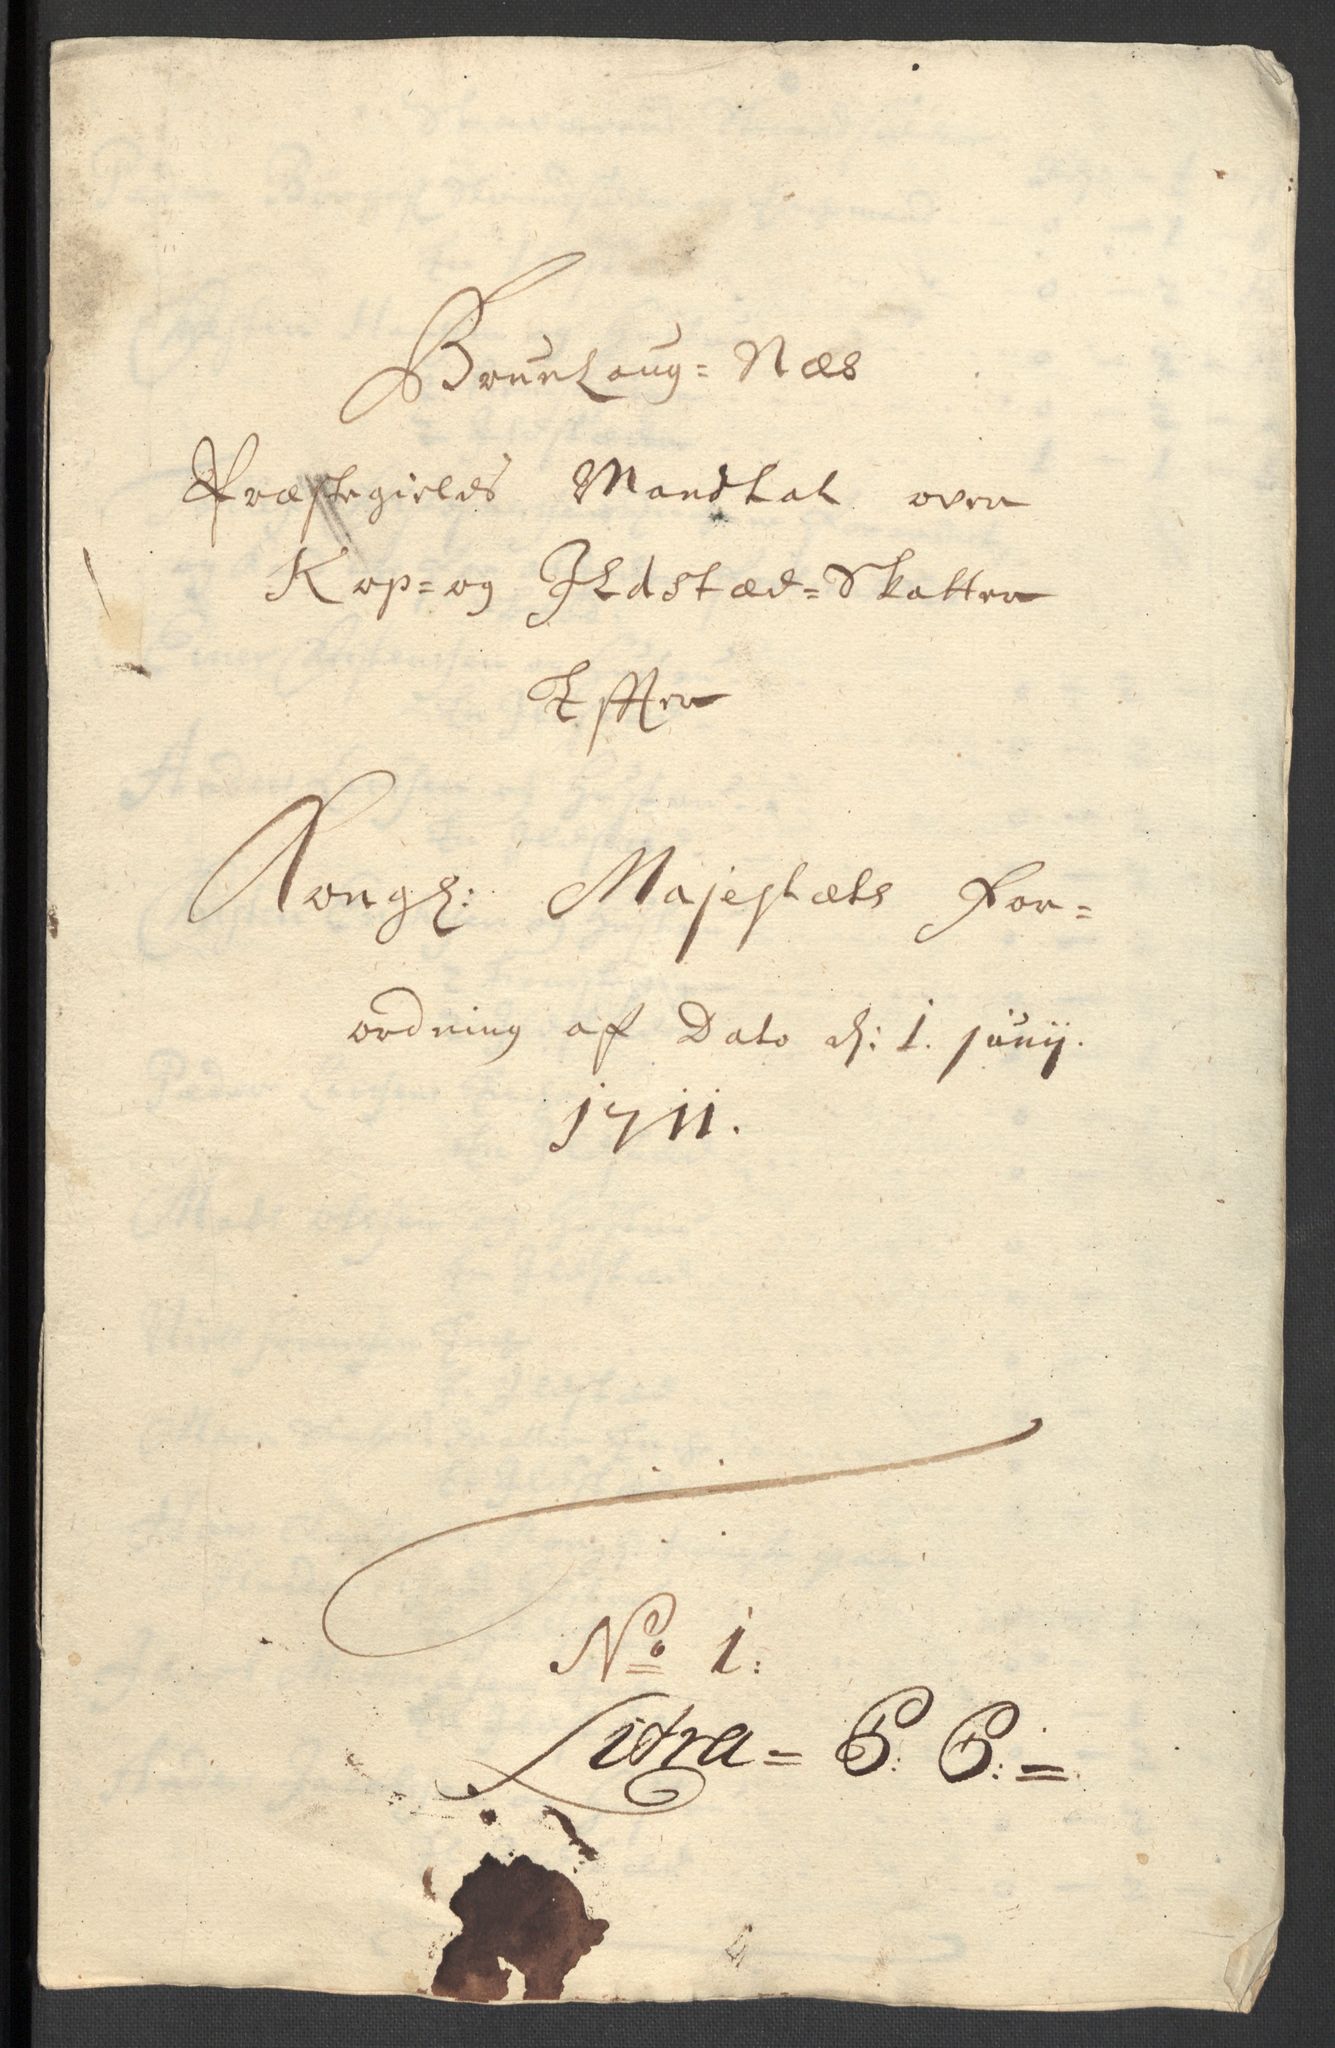 Brunlaug=Næs
Præstegields Mandtal over
Kop=og Ildstæd=Skatten
Effter
Kongl: Majestæts For=
ordning af Dato d: 1. junij.
1711.
No 1:
Litra= P: P:=